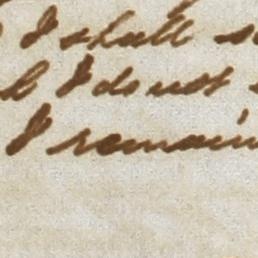 I shall
I do not
I remain